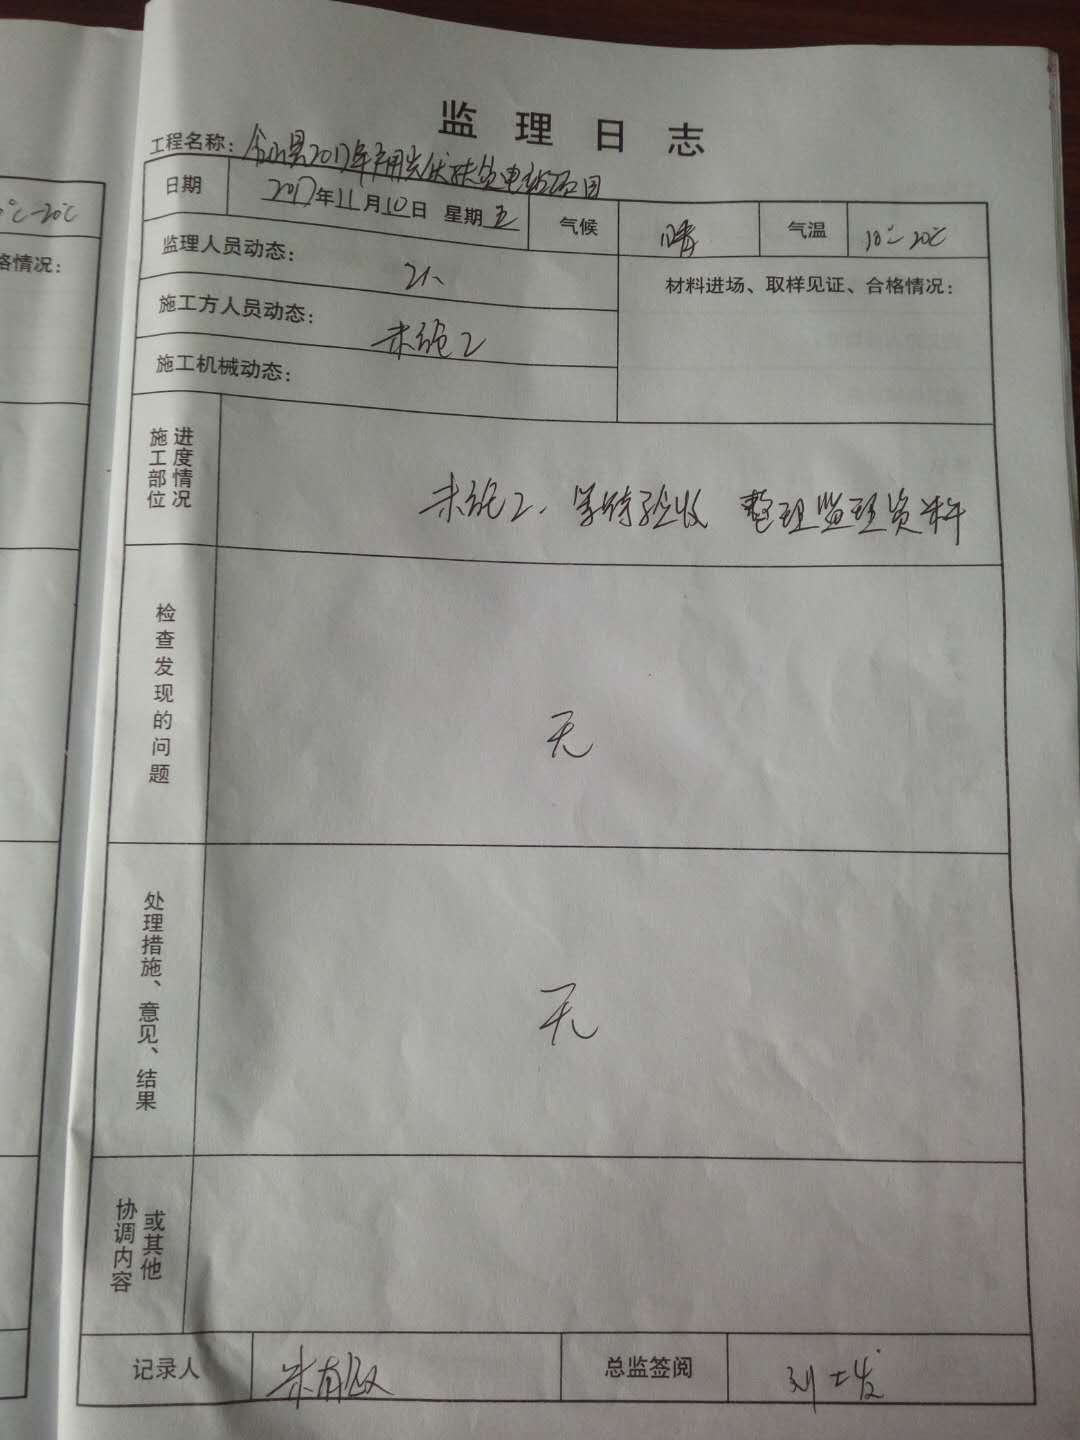 监理日志
工程名称：含山县2017年户用光伏扶贫电站项目
日期 2017年11月10日 星期五 气候 晴 气温 10℃-20℃
监理人员动态： 2人
材料进场、取样见证、合格情况：
施工方人员动态： 未施工
施工机械动态：
施工部位
进度情况
未施工、等待验收 整理监理资料
检查发现的问题
无
处理措施、意见、结果
无
协调内容
或其他
记录人
总监签阅
℃-20℃
格情况：